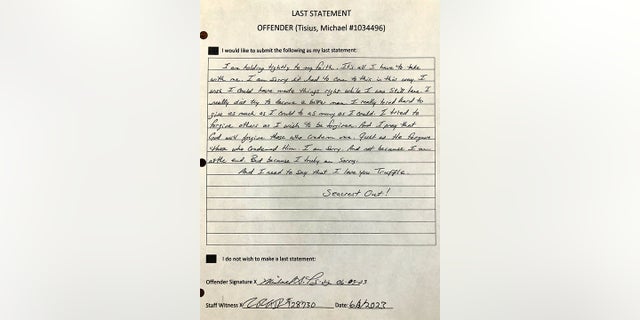 LAST STATEMENT
OFFENDER (Tisius, Michael #1034496)
I would like to submit the following as my last statement:
I am holding tightly to my faith. It's all I have to take
with me. I am sorry it had to come to this in this way. I
wish I could have made things right while I was still here. I
really did try to become a better man. I really tried hard to
give as much as I could to as many as I could. I tried to
forgive others as I wish to be forgiven. And I pray that
God will forgive those who condemn me. Just as He forgave
those who condemned Him. I am sorry. And not because I am
at the end. But because I truly am sorry.
And I need to say that I love you Truffle.
Seacrest Out!
I do not wish to make a last statement:
Offender Signature X
Staff Witness X Date: